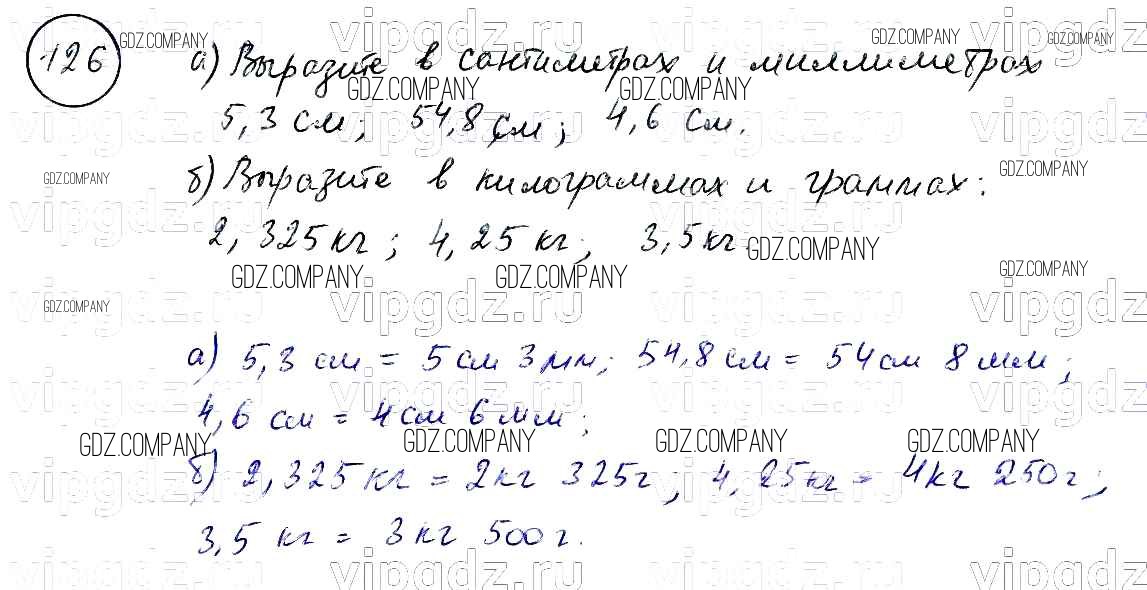 126 а) Выразите в сантиметрах и миллиметрах
5,3 см; 54,8 см; 4,6 см.
б) Выразите в килограммах и граммах:
2,325 кг; 4,25 кг; 3,5 кг.
а) 5,3 см = 5 см 3 мм; 54,8 см = 54 см 8 мм;
4,6 см = 4 см 6 мм;
б) 2,325 кг = 2 кг 325 г; 4,25 кг = 4 кг 250 г;
3,5 кг = 3 кг 500 г.
GDZ.COMPANY
vipgdz.ru